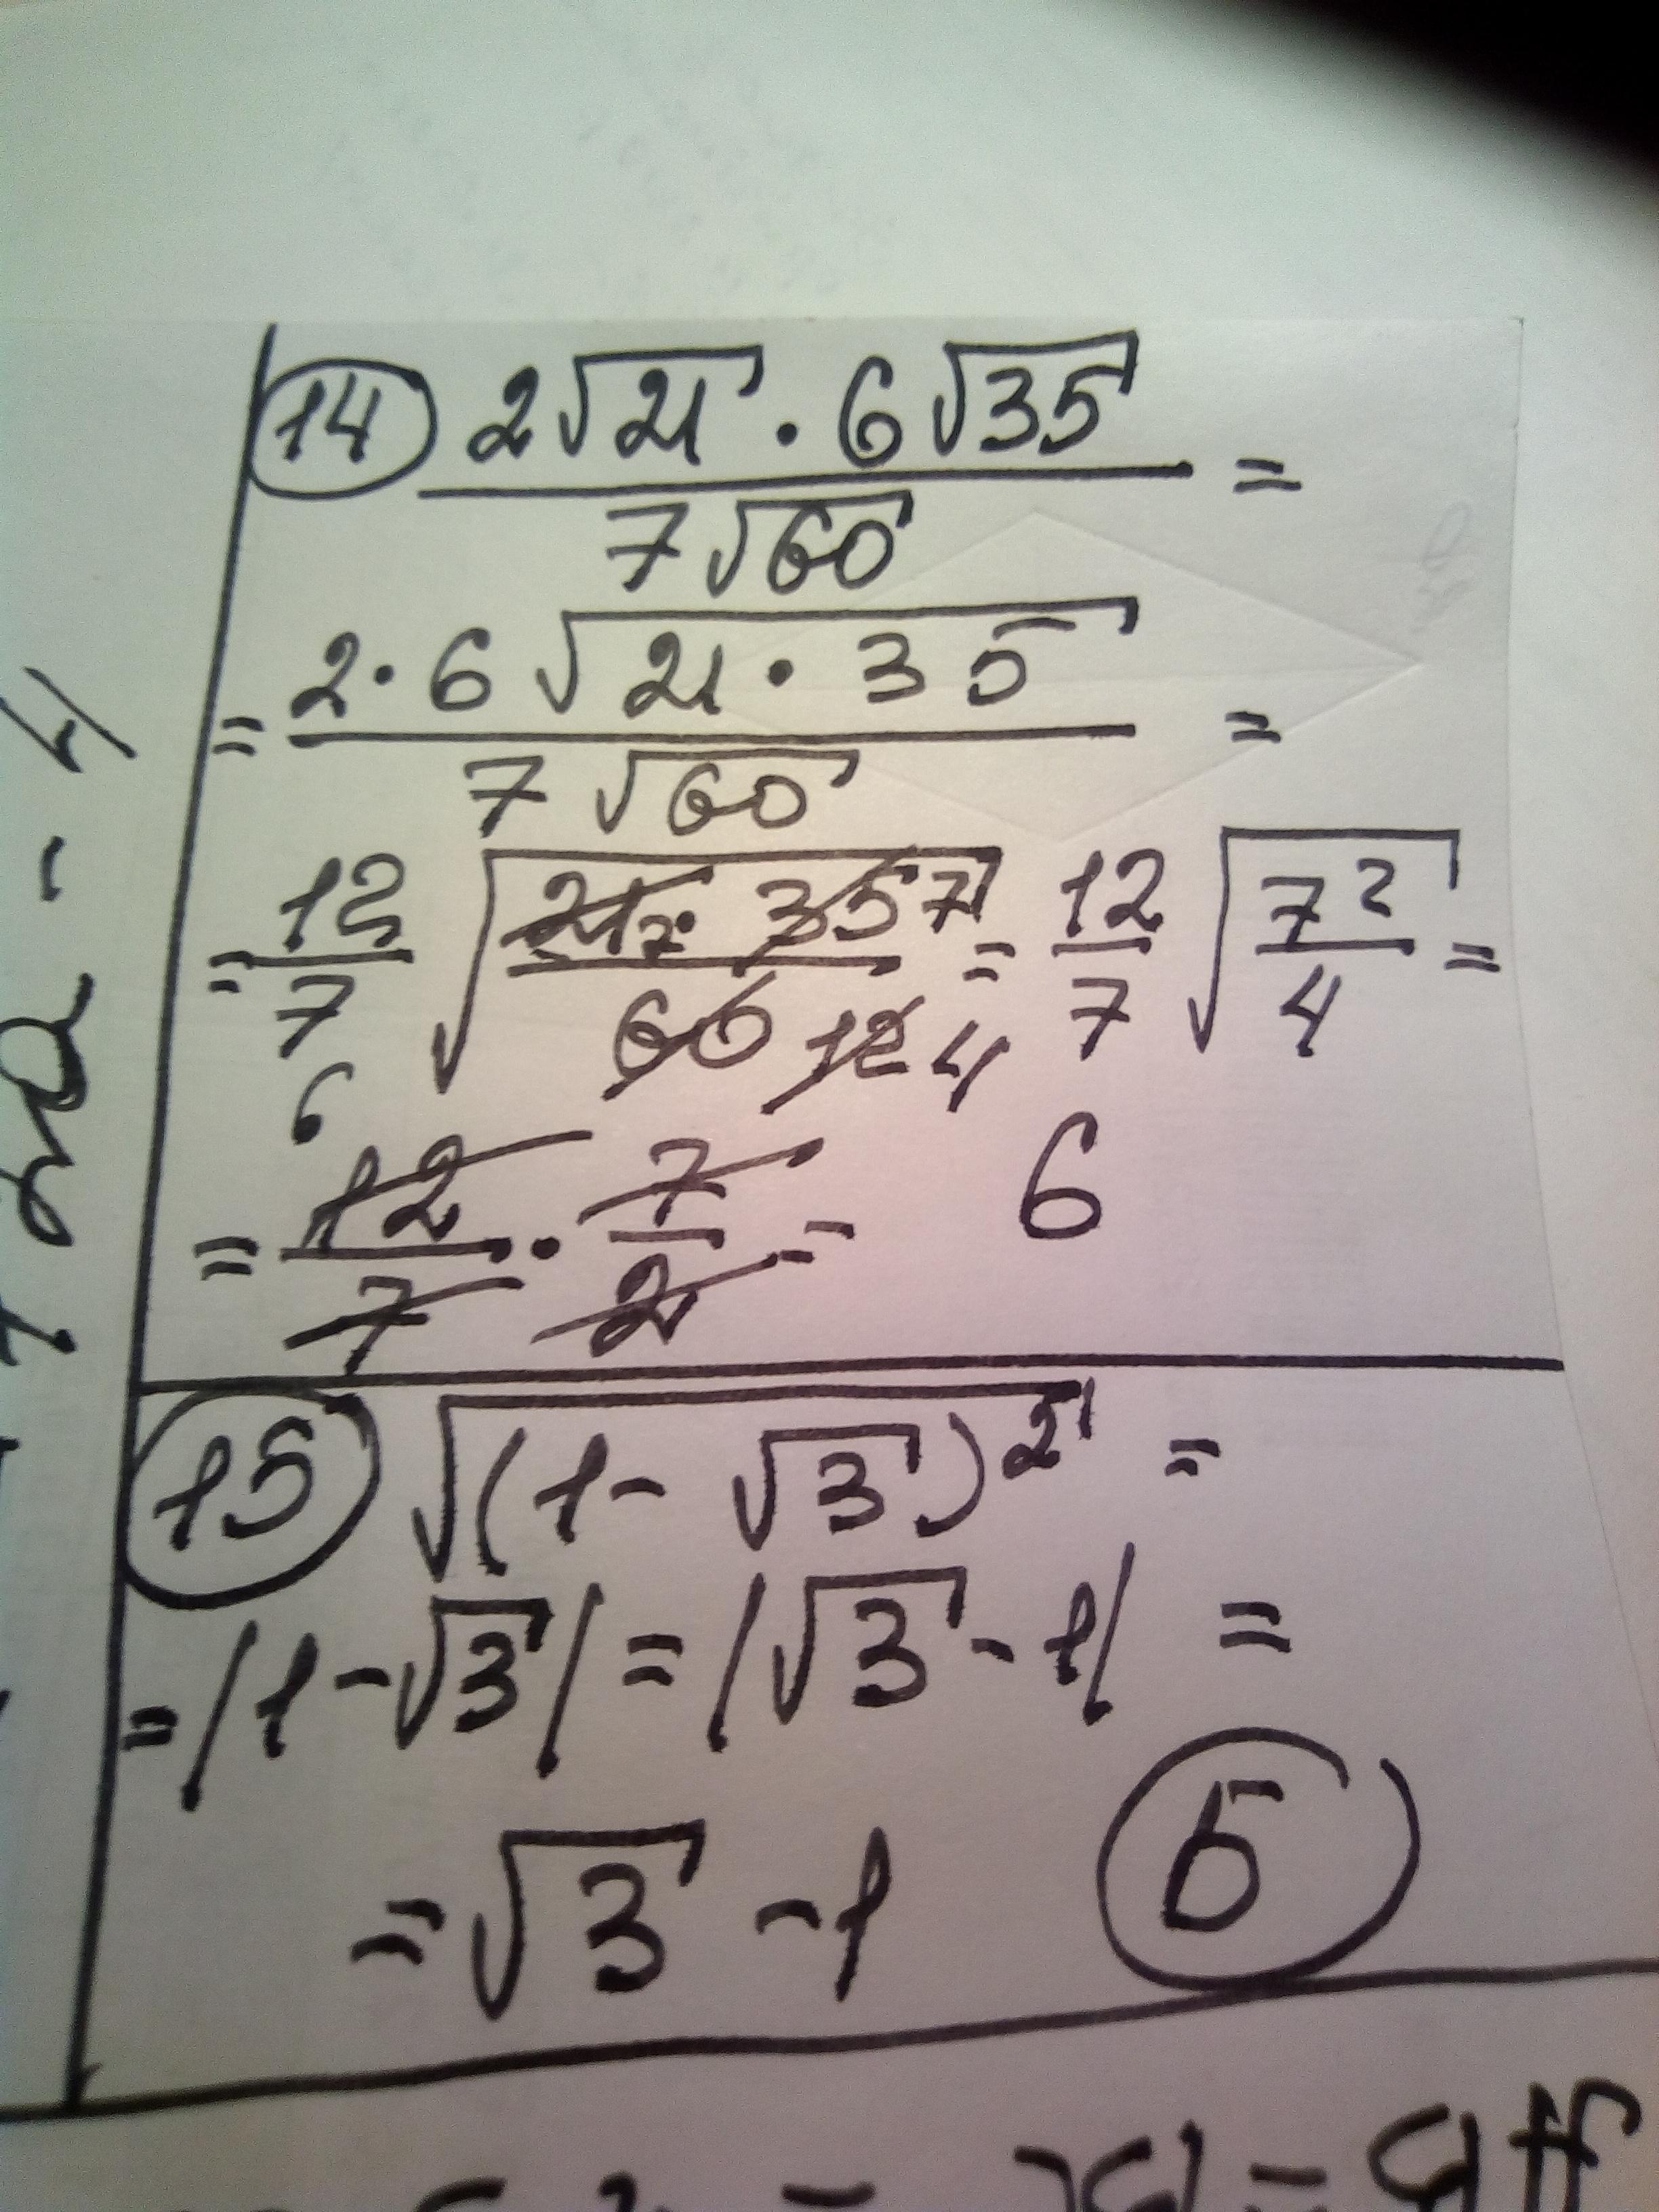 14) (2√21 · 6√35) / (7√60) =
= (2·6√(21 · 35)) / (7√60) =
= 12/7 √((21 7 · 35 7) / (60 12 4)) = 12/7 √(7²/4) =
6
= 12/7 · 7/2 = 6
15) √((1-√3)²) =
= |1-√3| = |√3-1| =
= √3 -1 Б